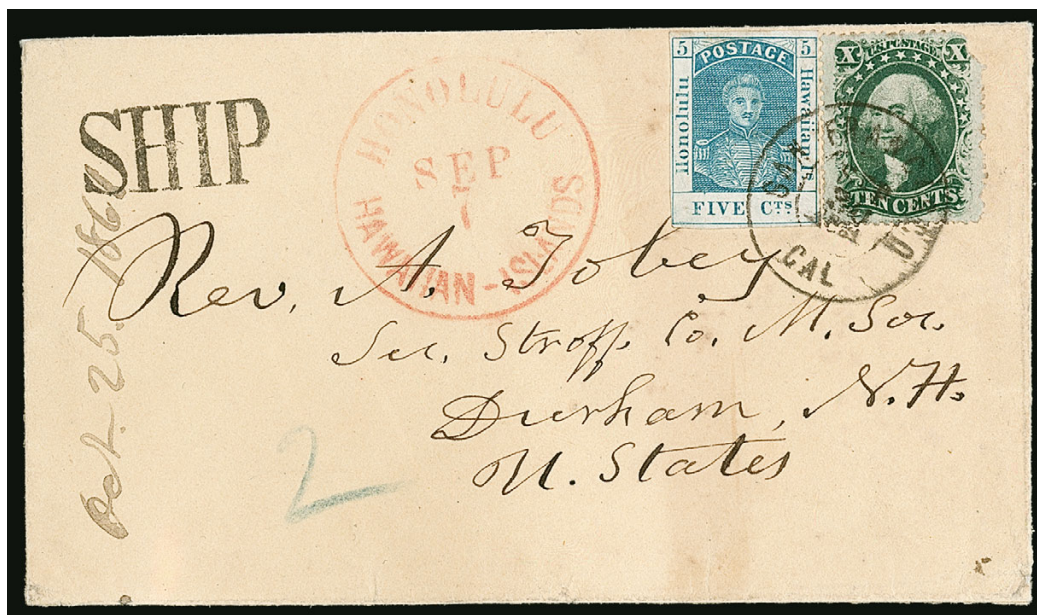 SHIP
HONOLULU
SEP
7
HAWAIIAN-ISLANDS
5 POSTAGE 5
Honolulu
Hawaiian Is.
FIVE CTS
X U.S. POSTAGE X
TEN CENTS
SAN
CAL
Rev. A. Tobey
Sec. Straff. Co. M. Soc.
Durham, N.H.
U. States
2
Oct. 25.